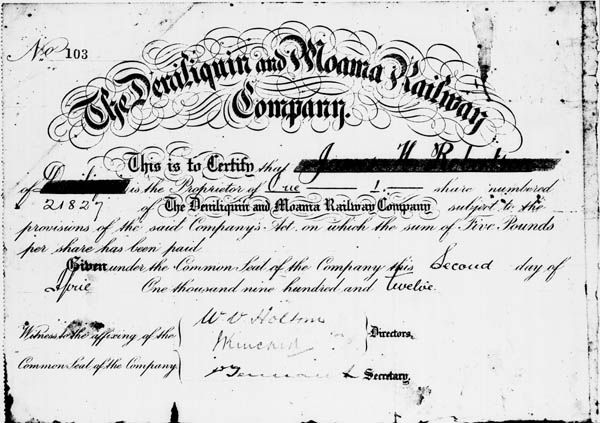 No 103
The Deniliquin and Moama Railway
Company.
This is to Certify that
of is the Proprietor of One 1 share numbered
21827 of The Deniliquin and Moama Railway Company subject to the
provisions of the said Company's Act, on which the sum of Five Pounds
per share has been paid
Given under the Common Seal of the Company this Second day of
One thousand nine hundred and twelve.
Witness to the affixing of the
Common Seal of the Company
Directors,
Secretary.